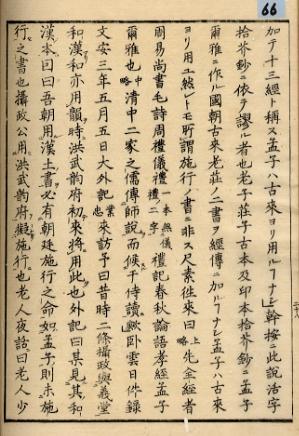 66
加テ十三經ト稱ス孟子ハ古來ヨリ用ルーナシ幹按ニ此說活字
拾芥鈔ニ依テ謬ル者也老子莊子古本及印本拾芥鈔ニ孟子
爾雅ニ作ル國朝古來老莊ノ二書ヲ經傳ニ加ルーナシ孟子ハ古來
ヨリ用ユ然レトモ所謂施行ノ書ニ非ス尺素徃來曰上略先全經者
周易尚書毛詩周禮儀禮一本無儀禮ノ二字禮記春秋論語孝經孟子
爾雅也中略清中二家之儒傳師說而候于侍讀臥雲日件錄
文安三年五月五日大外記業忠來訪予曰昔時二條攝政與義堂
和漢和亦用韻時洪武韵府初來將用此也外記曰某見其和
漢本曰曰吾朝用漢土書必有朝廷施行之命如孟子則未施
行之書也攝政公用洪武韵府擬施行也老人夜話曰老人少